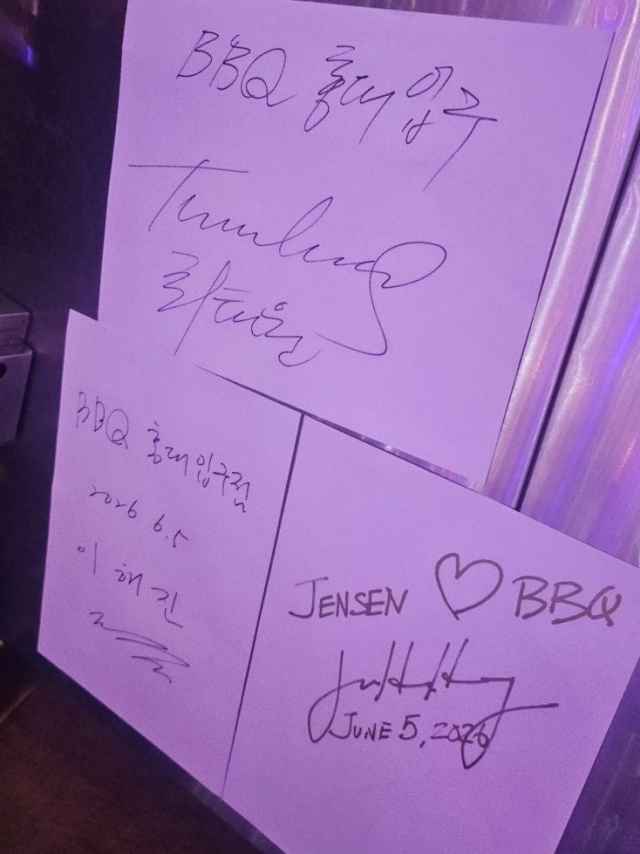 BBQ 홍대입구
최태원
BBQ 홍대입구점
2026 6.5
이해진
JENSEN ♡ BBQ
JUNE 5, 2026